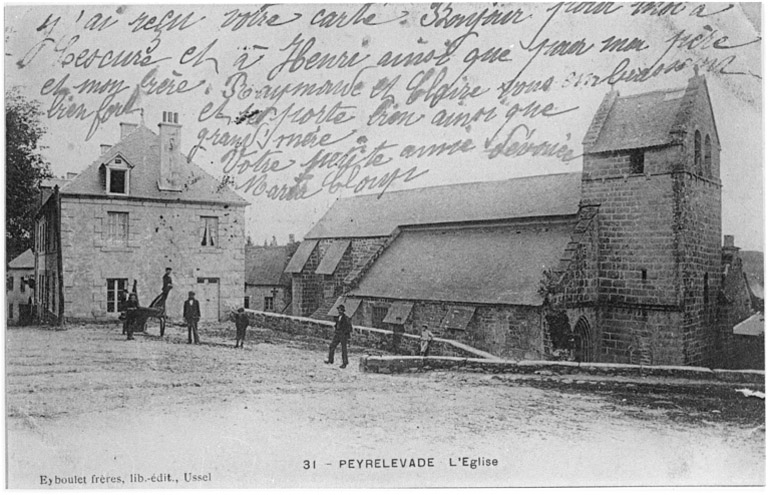 j'ai reçu votre carte. Bonjour pour moi à
Lescure et à Henri ainsi que pour mon père
et mon frère. Raymonde et Claire vous embrassent
bien fort et se porte bien ainsi que
grand'mère
Votre petite amie dévouée
Maria
31 - PEYRELEVADE L'Eglise
Eyboulet frères, lib.-édit., Ussel